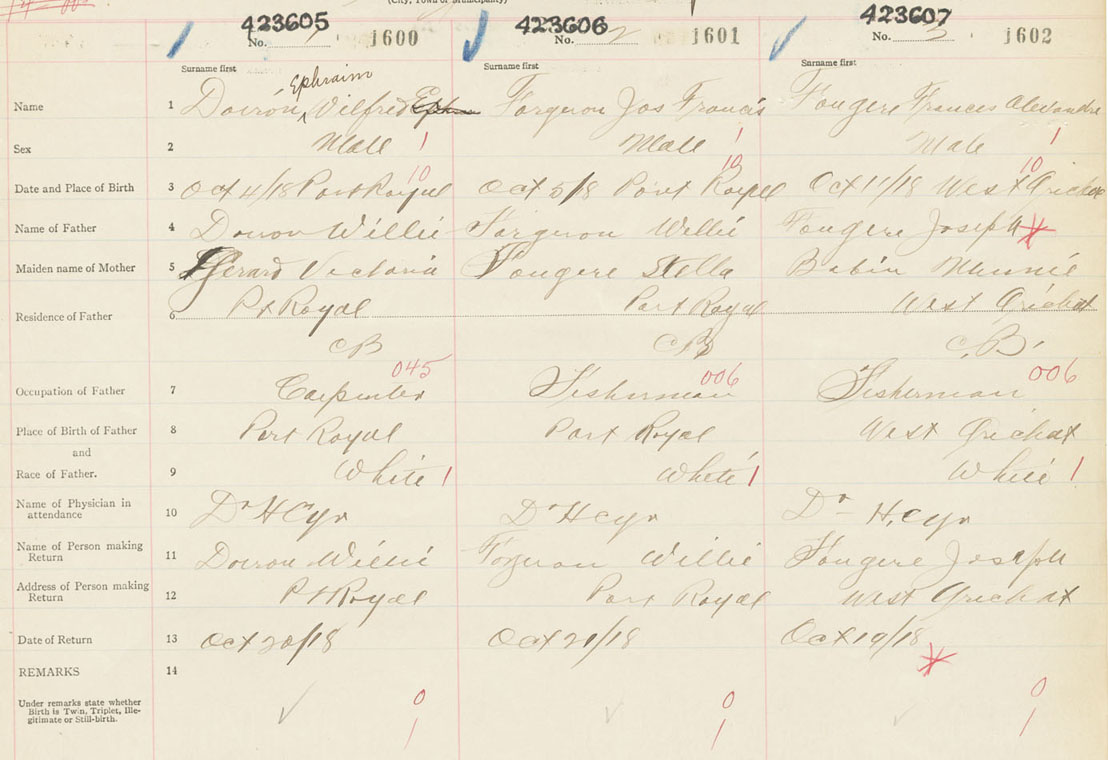 (City, Town or Municipality)
423605 423606 423607
No. 1 1600 No. 2 1601 No. 3 1602
Surname first Surname first Surname first
Ephraim
Name 1 Doiron Wilfred Forgeron Jos Francis Fougere Frances Alexandre
Sex 2 Male 1 Male 1 Male 1
10 10 10
Date and Place of Birth 3 Oct 4/18 Port Royal Oct 5/8 Port Royal Oct 11/18 West Arichat
Name of Father 4 Doiron Willie Forgeron Willie Fougere Joseph
Maiden name of Mother 5 Gerard Victoria Fougere Stella Babin Minnie
Residence of Father 6 Pt Royal Port Royal West Arichat
CB CB C.B.
045 006 006
Occupation of Father 7 Carpenter Fisherman Fisherman
Place of Birth of Father 8 Port Royal Port Royal West Arichat
and
Race of Father. 9 White 1 White 1 White 1
Name of Physician in
attendance 10 Dr H Cyr Dr H Cyr Dr H. Cyr
Name of Person making
Return 11 Doiron Willie Forgeron Willie Fougere Joseph
Address of Person making
Return 12 Pt Royal Port Royal West Arichat
Date of Return 13 Oct 20/18 Oct 21/18 Oct 19/18
REMARKS 14
Under remarks state whether
Birth is Twin, Triplet, Ille-
gitimate or Still-birth.
0 0 0
1 1 1